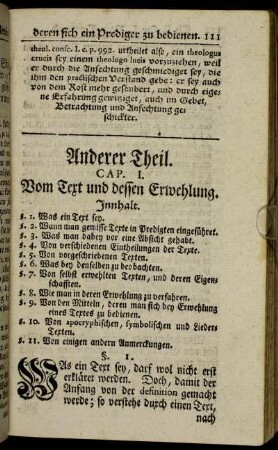 deren sich ein Prediger zu bedienen. 111
theol. conse. l. c. p. 992. urtheilet also, ein theologus
crucis sey einem theologo lucis vorzuziehen, weil
er durch die Anfechtung geschmiedet sey, die
ihm den practischen Verstand gebe: er sey auch
von dem Rost mehr gesäubert, und durch eige-
ne Erfahrung gereiniget, auch im Gebet,
Betrachtung und Anfechtung ge-
schickter.
Anderer Theil.
CAP. I.
Vom Text und dessen Erwehlung.
Innhalt.
§. 1. Was ein Text sey.
§. 2. Wann man gewisse Texte in Predigten eingeführet.
§. 3. Was man dabey vor eine Absicht gehabt.
§. 4. Von verschiedenen Eintheilungen der Texte.
§. 5. Von vorgeschriebenen Texten.
§. 6. Was bey denselben zu beobachten.
§. 7. Von selbst erwehlten Texten, und deren Eigen-
schafften.
§. 8. Wie man in deren Erwehlung zu verfahren.
§. 9. Von den Mitteln, deren man sich bey Erwehlung
eines Textes zu bedienen.
§. 10. Von apocryphischen, symbolischen und Lieder-
Texten.
§. 11. Von einigen andern Anmerckungen.
§. 1.
WAs ein Text sey, darf wol nicht erst
erkläret werden. Doch, damit der
Anfang von der definition gemacht
werde; so verstehe durch einen Text,
nach